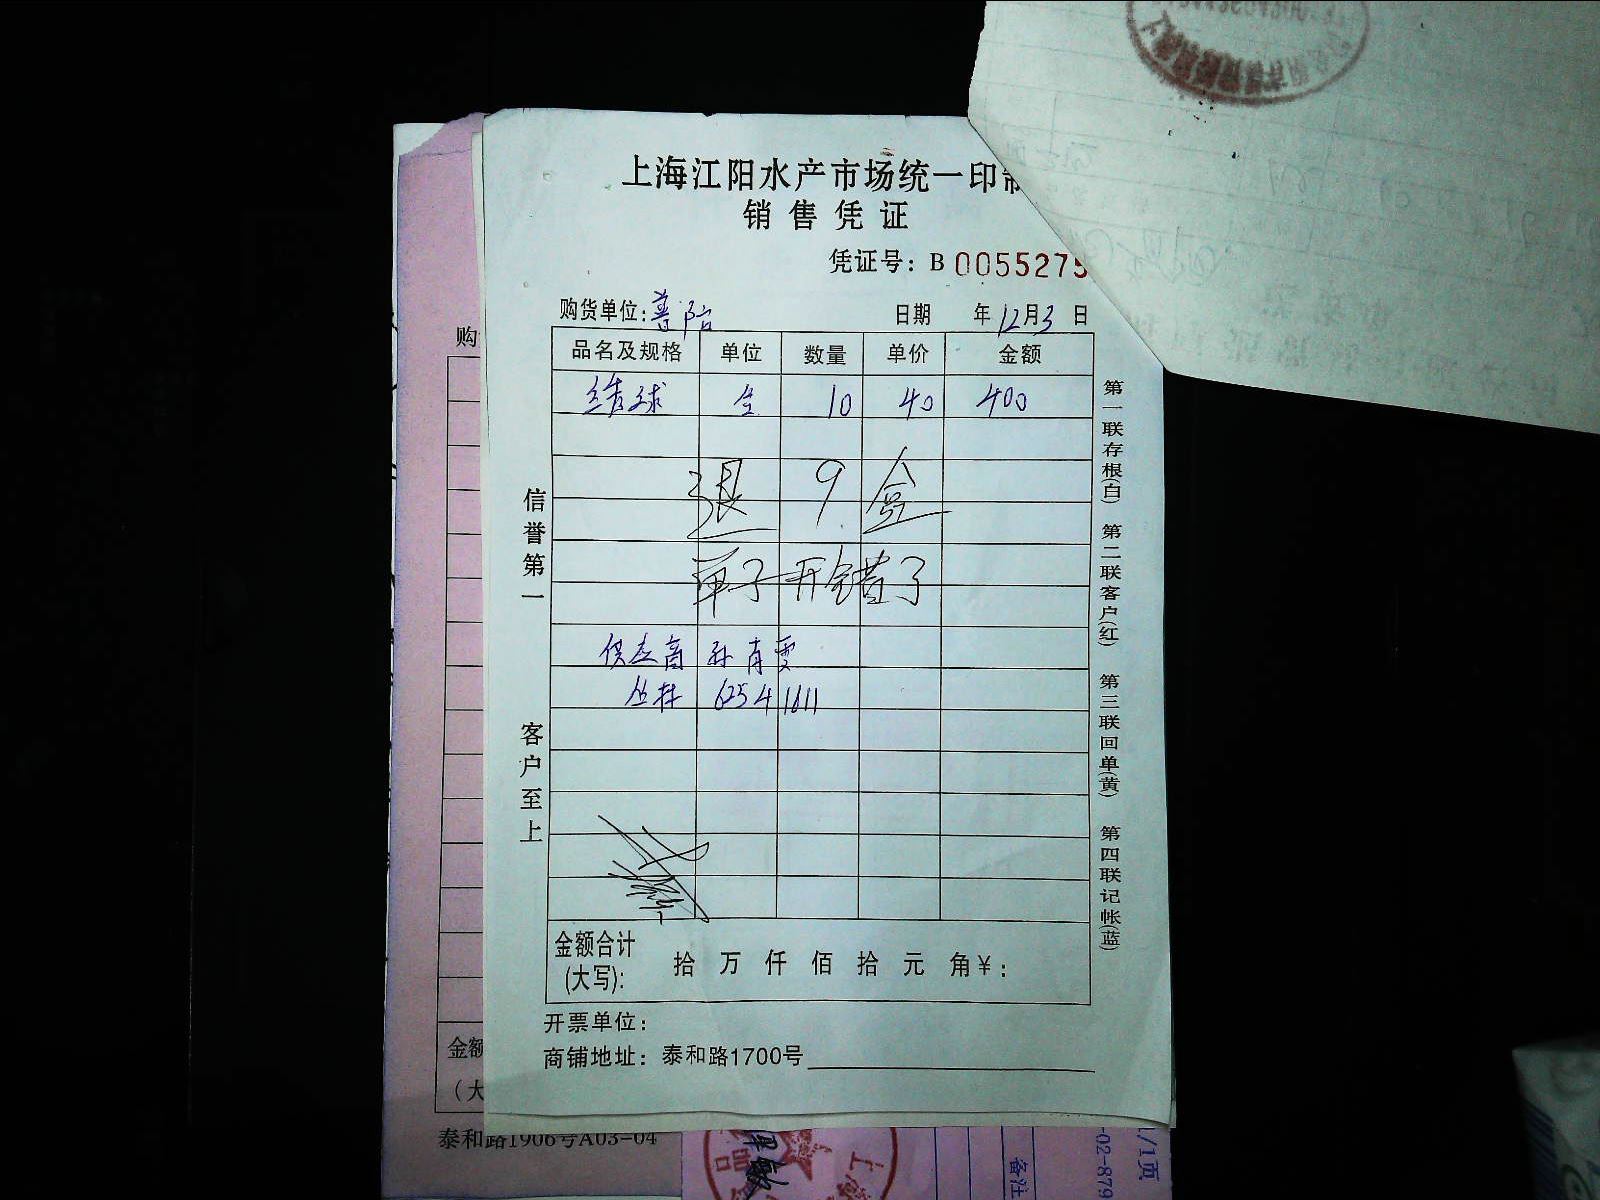 上海江阳水产市场统一印制
销售凭证
凭证号：B 0055275
购货单位：普陀 日期 年12月3日
品名及规格 单位 数量 单价 金额
洁球 盒 10 40 400
退 9 盒
单子开错了
供应商 孙肖雯
丛林 62541611
信誉第一
客户至上
第一联存根(白) 第二联客户(红) 第三联回单(黄) 第四联记帐(蓝)
金额合计
(大写): 拾 万 仟 佰 拾 元 角 ¥:
开票单位：
商铺地址：泰和路1700号
购
金额
(大
泰和路1906号A03-04
备注
-02-879
1/1页